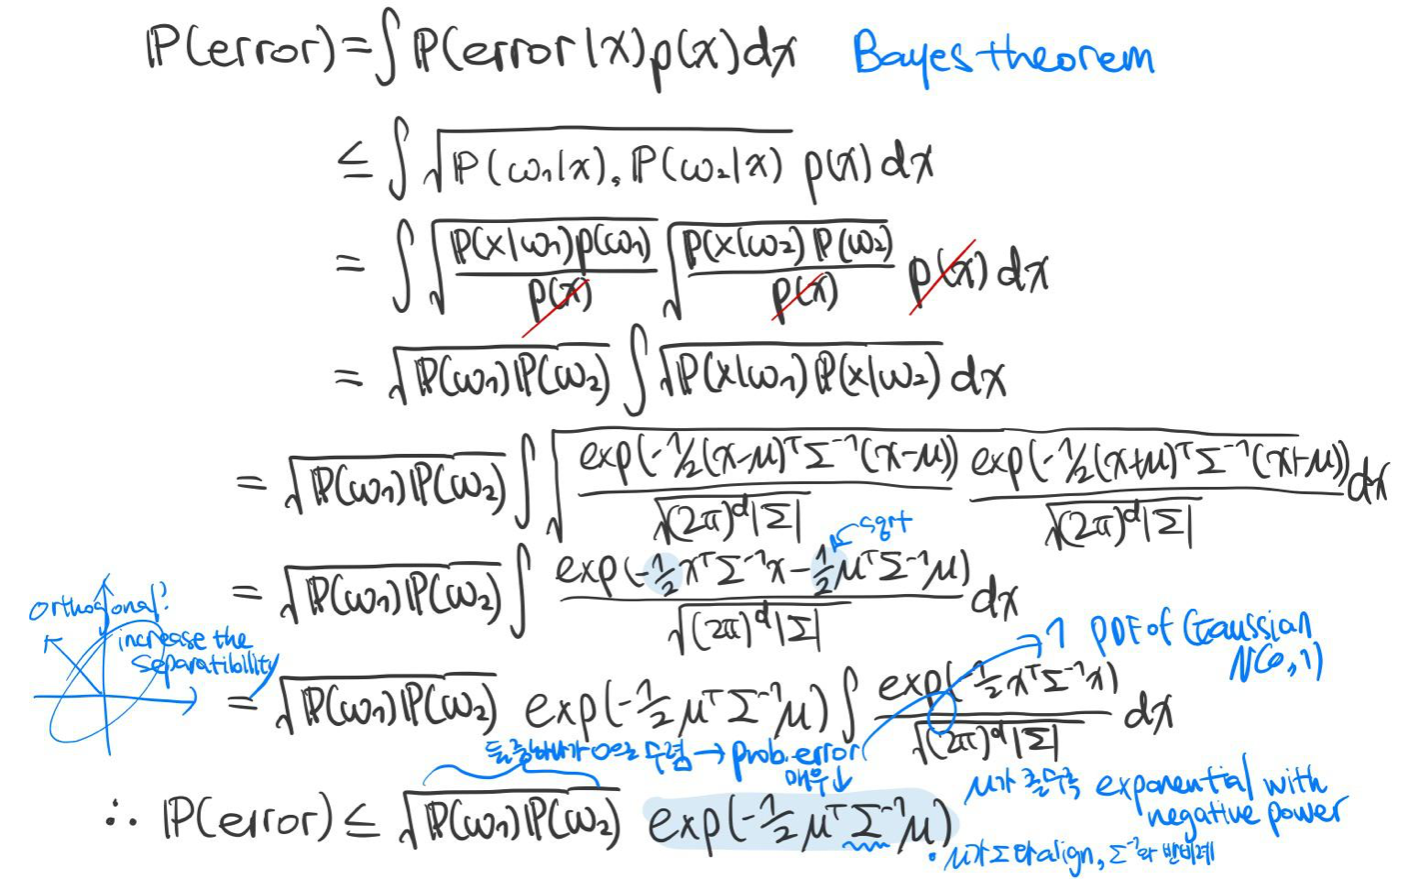 ℙ(error) = ∫ ℙ(error|x) p(x) dx   Bayes theorem
≤ ∫ √(ℙ(ω₁|x), ℙ(ω₂|x)) p(x) dx
= ∫ √(ℙ(x|ω₁)p(ω₁) / p(x)) √(ℙ(x|ω₂)ℙ(ω₂) / p(x)) p(x) dx
= √(ℙ(ω₁)ℙ(ω₂)) ∫ √(ℙ(x|ω₁) ℙ(x|ω₂)) dx
= √(ℙ(ω₁)ℙ(ω₂)) ∫ √(exp(-1/2(x-μ)ᵀΣ⁻¹(x-μ)) / √((2π)ᵈ|Σ|) exp(-1/2(x+μ)ᵀΣ⁻¹(x+μ)) / √((2π)ᵈ|Σ|)) dx
sqrt
= √(ℙ(ω₁)ℙ(ω₂)) ∫ exp(-1/2 xᵀΣ⁻¹x - 1/2 μᵀΣ⁻¹μ) / √((2π)ᵈ|Σ|) dx
orthogonal?
increase the
separatibility
→ 1 PDF of Gaussian
N(0,1)
= √(ℙ(ω₁)ℙ(ω₂)) exp(-1/2 μᵀΣ⁻¹μ) ∫ exp(-1/2 xᵀΣ⁻¹x) / √((2π)ᵈ|Σ|) dx
둘중하나가 0으로 수렴 → prob.error
매우↓
∴ ℙ(error) ≤ √(ℙ(ω₁)ℙ(ω₂)) exp(-1/2 μᵀΣ⁻¹μ)
μ가 exponential with
negative power
• μ가 Σ align, Σ⁻¹와 반비례